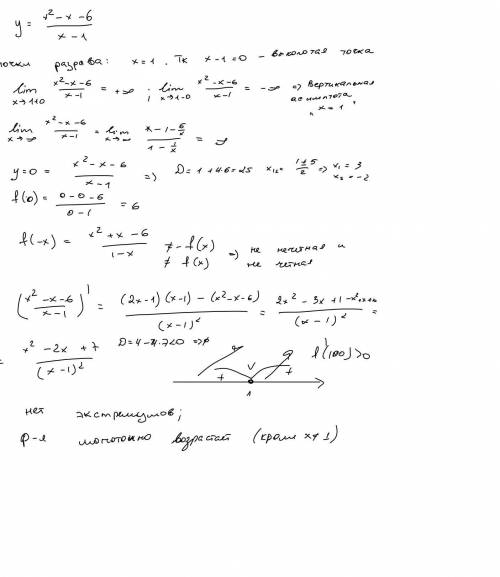 y = (x² - x - 6)/(x - 1)
точки разрыва: x = 1, Тк x-1=0 - выколотая точка
lim x→1+0 (x²-x-6)/(x-1) = +∞ ; lim x→1-0 (x²-x-6)/(x-1) = -∞ ⇒ вертикальная
асимптота
"x = 1"
lim x→∞ (x²-x-6)/(x-1) = lim x→∞ (x-1-6/x)/(1-1/x) = ∞
y=0 = (x²-x-6)/(x-1) ⇒ D = 1+4·6=25 x₁,₂= (1±5)/2 ⇒ x₁ = 3
x₂ = -2
f(0) = (0-0-6)/(0-1) = 6
f(-x) = (x²+x-6)/(1-x) ≠ -f(x) ⇒ не нечетная и
≠ f(x) не четная
((x²-x-6)/(x-1))' = ((2x-1)(x-1) - (x²-x-6))/(x-1)² = (2x² - 3x + 1 - x²+x+6)/(x-1)² =
= (x² - 2x + 7)/(x-1)² D=4-4·7<0 ⇒ ∅
+ V + f'(100)>0
1
нет экстремумов;
ф-я монотонно возрастает (кроме x≠1)